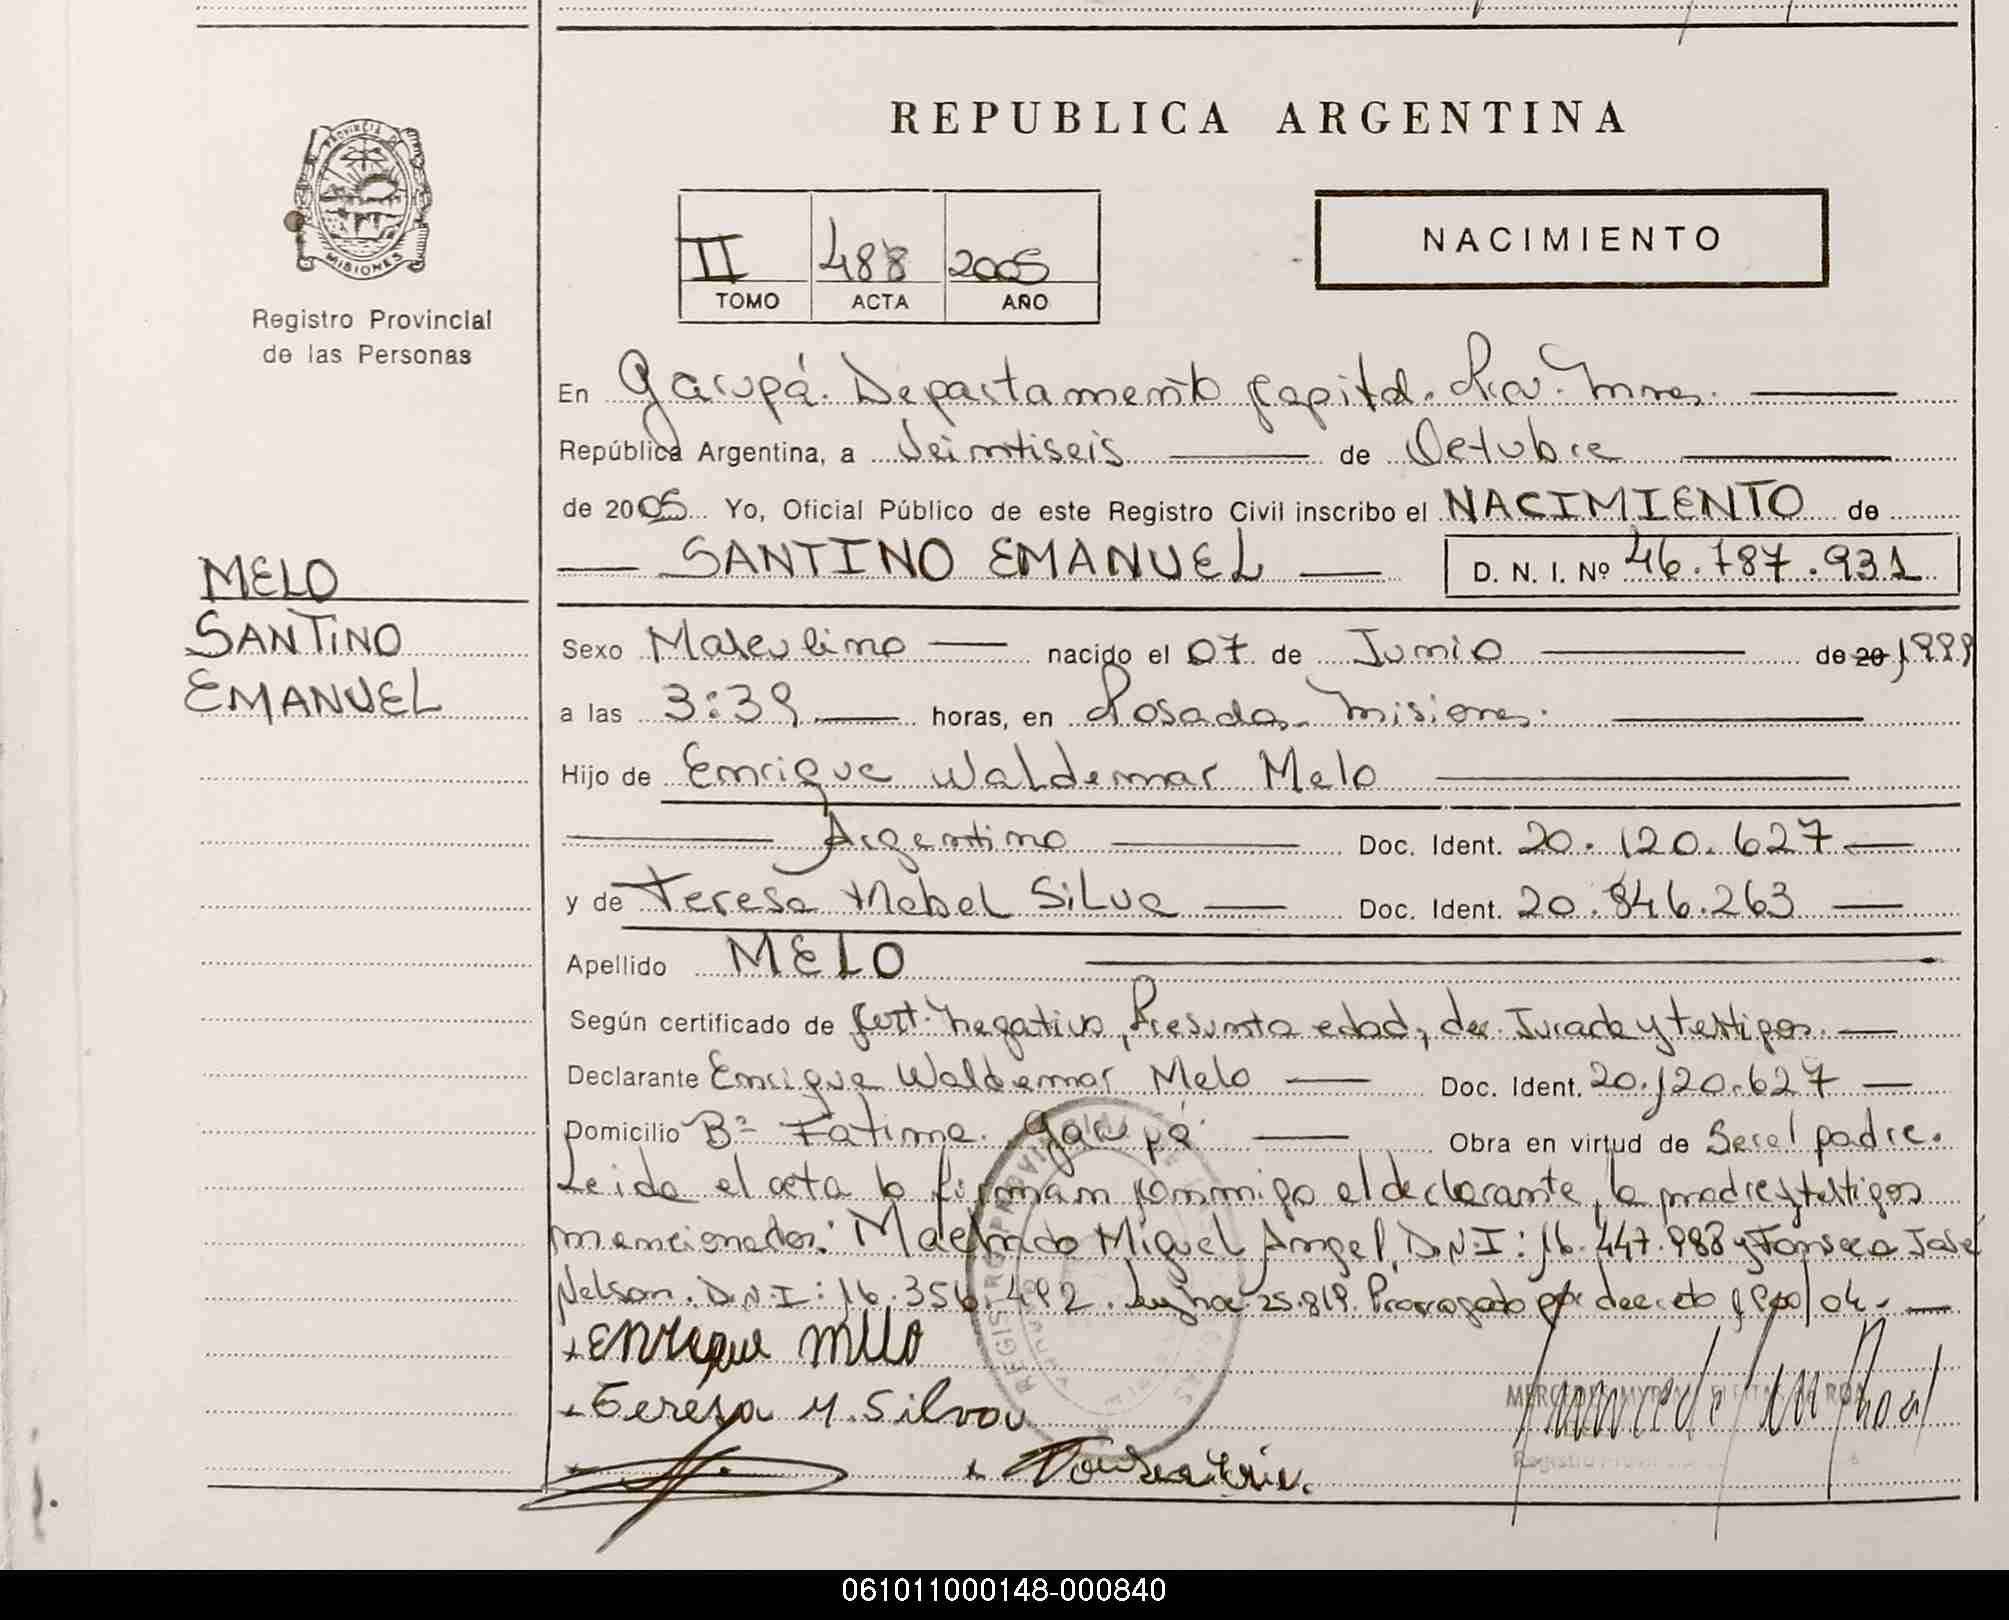 REPUBLICA ARGENTINA
PROVINCIA DE
MISIONES
Registro Provincial
de las Personas
NACIMIENTO
II 488 2005
TOMO ACTA AÑO
En Garupá. Departamento Capital. Prov. Mnes.
República Argentina, a Veintiseis de Octubre
de 2005 Yo, Oficial Público de este Registro Civil inscribo el NACIMIENTO de
SANTINO EMANUEL D. N. I. Nº 46.787.931
MELO
SANTINO
EMANUEL
Sexo Masculino nacido el 07 de Junio de 20 1999
a las 3:39 horas, en Posadas. Misiones.
Hijo de Enrique Waldemar Melo
Argentino Doc. Ident. 20.120.627
y de Teresa Mabel Silva Doc. Ident. 20.846.263
Apellido MELO
Según certificado de Cert. Negativo, Presunta edad, dec. Jurada y testigos.
Declarante Enrique Waldemar Melo Doc. Ident. 20.120.627
Domicilio Bº Fatima. Garupá Obra en virtud de Ser el padre.
Leida el acta la firman conmigo el declarante, la madre y testigos
mencionados: Machado Miguel Angel, D.N.I: 16.447.988 y Fonseca José
Nelson. D.N.I: 16.356.492. Ley nac 25.819. Prorrogado por decreto 1800/04.
Enrique Melo
Teresa M. Silva
061011000148-000840